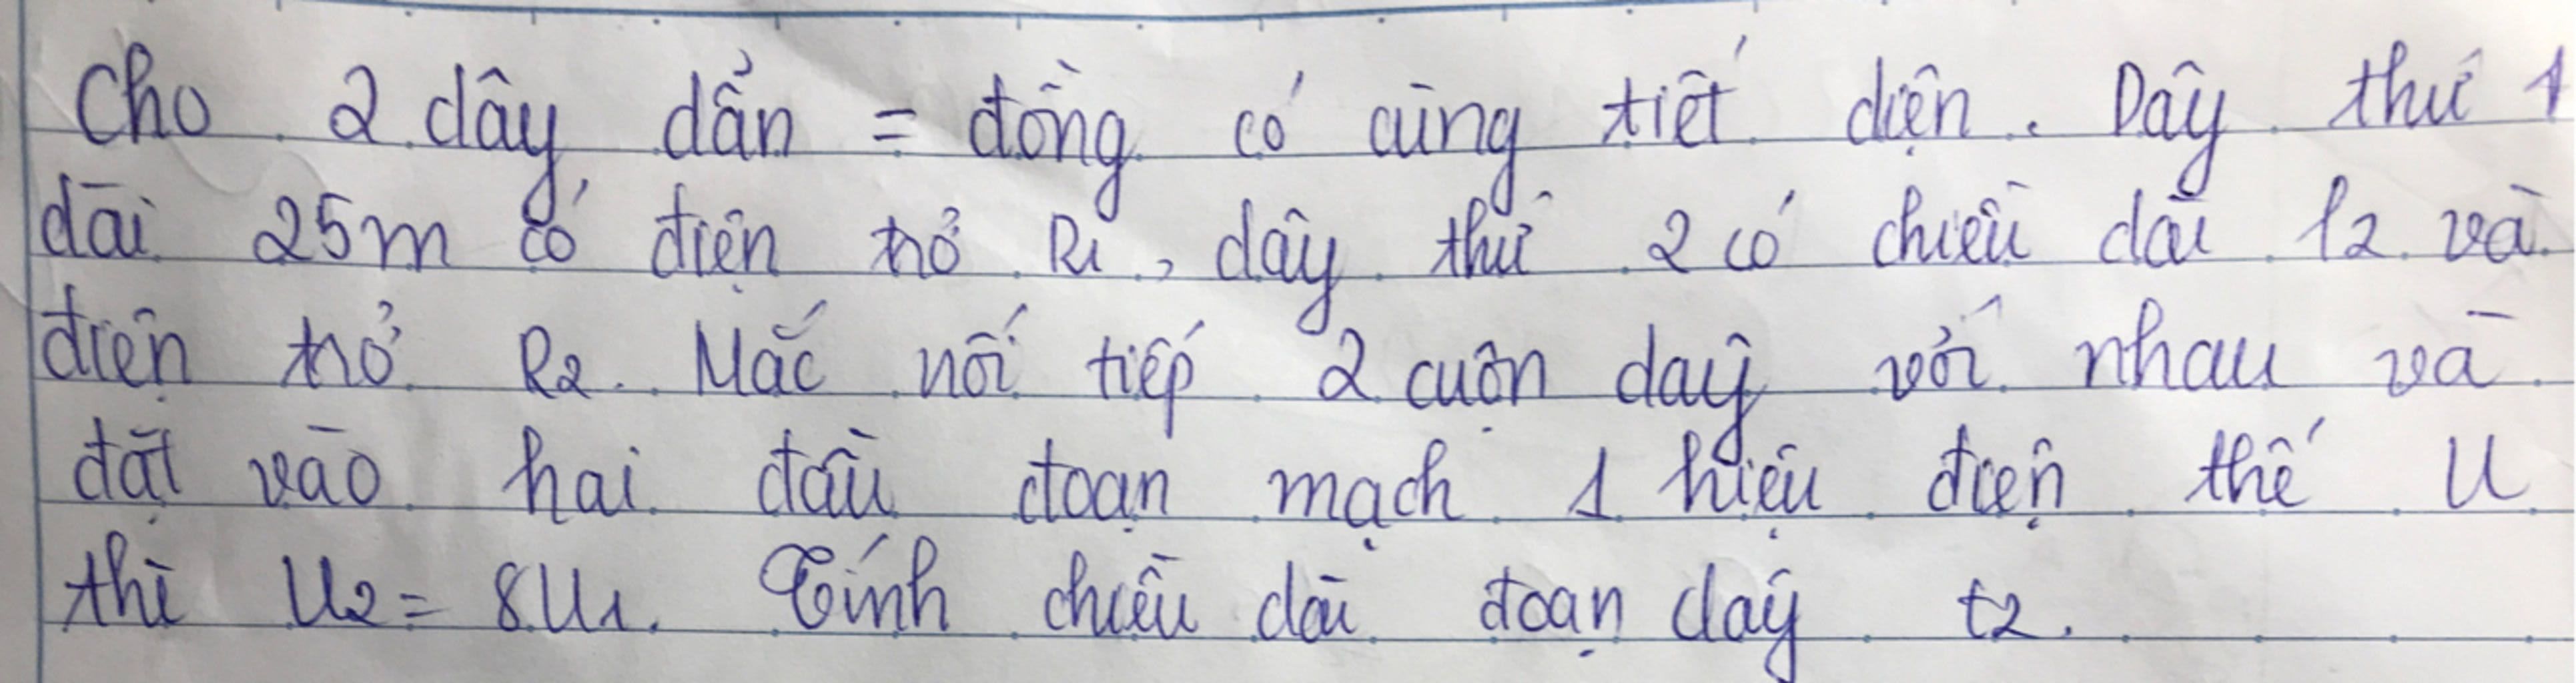 Cho 2 dây dẩn = đồng có cùng tiết diện. Dây thứ 1
dài 25m có điện trở R1, dây thứ 2 có chiều dài l2 và
điện trở R2. Mắc nối tiếp 2 cuộn dây với nhau và
đặt vào hai đầu đoạn mạch 1 hiệu điện thế U
thì U2 = 8U1. Tính chiều dài đoạn dây t2.